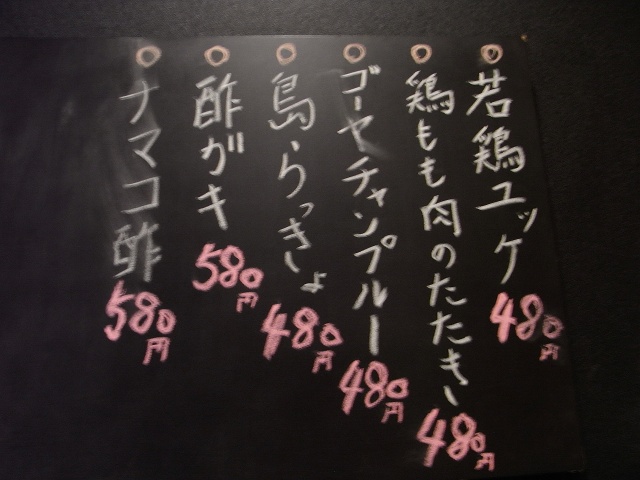 ○若鶏ユッケ480円
○鶏もも肉のたたき480円
○ゴーヤチャンプルー480円
○島らっきょ480円
○酢ガキ580円
○ナマコ酢580円